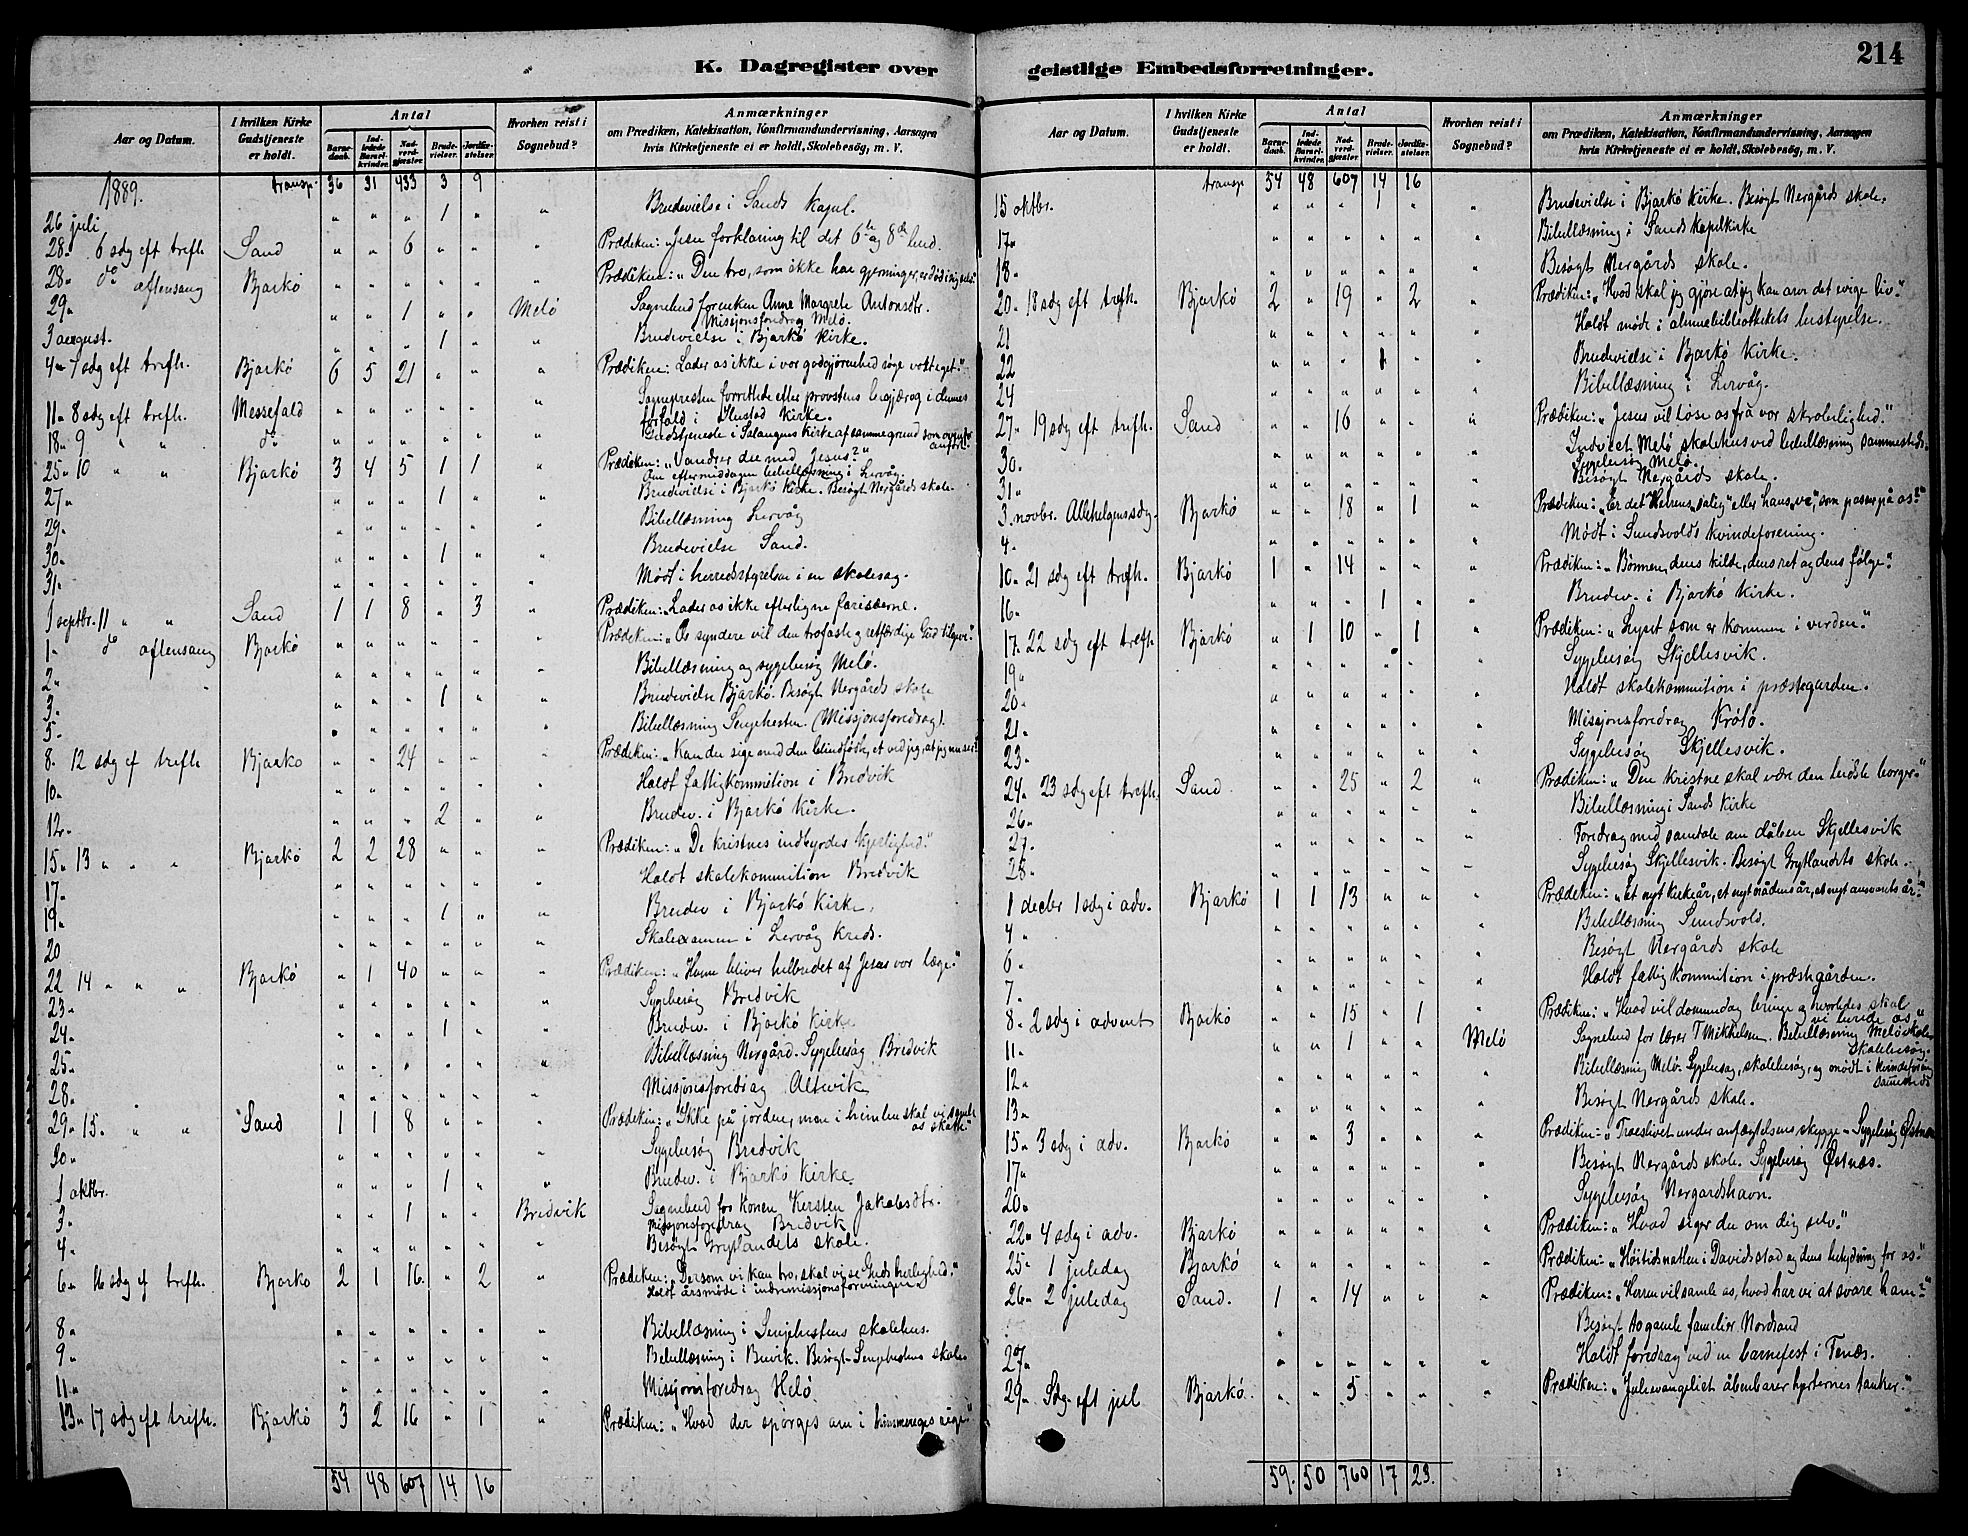 K. Dagregister over geistlige Embedsforretninger.
214
Aar og Datum. | I hvilken Kirke Gudstjeneste er holdt. | Antal | Barnedaab. | Indledede Barselkvinder. | Nadverdgjæster. | Brudevielser. | Jordfæstelser. | Hvorhen reist i Sognebud? | Anmærkninger om Prædiken, Katekisation, Konfirmandundervisning, Aarsagen hvis Kirketjeneste ei er holdt, Skolebesøg, m. V.
1889. transp. 36 31 433 3 9
26 juli " " " 1 " " Brudevielse i Sands Kapel.
28 " 6 sdg eft trefh Sand " " 6 " " " Prædiken: "Jesu forklaring til det 6te og 8de bud.
28 " do aftensang Bjarkö " " " " " " Prædiken: "Den tro, som ikke har gjerninger, er död i sig selv."
29 " " " 1 " " Melö Sognebud for enken Anne Margrete Antonsdtr.
Missjonsforedrag Melö.
3 august. " " " 1 " " Brudevielse i Bjarkö Kirke.
4 " 7 sdg eft trefh. Bjarkö 6 5 21 " " " Prædiken: Lader os ikke i vor godgjörenhed söge vort eget."
11 " 8 sdg eft trefh. Messefald " " " " " " Sognepresten forrettede efter provstens begjæring i dennes
forfald i Ibestad Kirke.
18 " 9 " " do " " " " " " Gudstjeneste i Salangens Kirke af samme grund som ovenfor
anfört.
25 " 10 " " Bjarkö 3 4 5 1 1 " Prædiken: "Vandrer du med Jesus?"
Om eftermiddagen bibellæsning i Lervåg.
27 " " " " 1 " " Brudevielse i Bjarkö Kirke. Besögt Nergårds skole
29 " " " " " " " Bibellæsning Lervåg
30 " " " " 1 " " Brudevielse Sand.
31 " " " " " " " Mödt i herredsstyrelsen i en skolesag.
1 septbr. 11 " " Sand 1 1 8 " 3 " Prædiken: "Lader os ikke efterligne farisæerne.
1 " do aftensang Bjarkö " " " " " " Prædiken: "Os syndere vil den trofaste og retfærdige Gud tilgive."
2 " " " " " " " Bibellæsning og sygebesög Melö.
3 " " " " 1 " " Brudevielse Bjarkö. Besögt Nergårds skole
5 " " " " " " " Bibellæsning Senjehesten. (Missjonsforedrag).
8 " 12 sdg ef trefh Bjarkö " " 24 " " " Prædiken: "Kan du sige med den blindfödte, et ved jeg, at jeg nu ser?"
10 " " " " " " " Holdt fattigkommition i Bredvik
12 " " " " 2 " " Brudev. i Bjarkö Kirke.
15 " 13 " " Bjarkö 2 2 28 " " " Prædiken: "De kristnes indbyrdes kjærlighed."
17 " " " " " " " Holdt skolekommition Bredvik
19 " " " " 1 " " Brudev i Bjarkö Kirke.
20 " " " " " " Skoleexamen i Lervåg Kreds.
22 14 " " " Bjarkö " 1 40 " " " Prædiken: "Hvem bliver helbredet af Jesus vor læge."
23 " " " " " " " Sygebesög Bredvik
24 " " " " 1 " " Brudev. i Bjarkö Kirke
25 " " " " " " " Bibellæsning Nergård. Sygebesög Bredvik
28 " " " " " " " Missjonsforedrag Altevik
29 " 15. " " Sand 1 1 8 " " " Prædiken: "Ikke på jorden, men i himlen skal vi samle
os skatte"
30 " " " " " " " Sygebesög Bredvik
1 oktbr. " " " 1 " " Brudev. i Bjarkö Kirke
3 " " " 1 " " Bredvik Sognebud for konen Kersten Jakobsdtr.
Missjonsforedrag Bredvik
4 " " " " " " " Besögt Grytlandets skole.
6 " 16 sdg ef trefh. Bjarkö 2 1 16 " 2 " Prædiken: "Dersom vi kan tro, skal vi se Guds herlighed."
Holdt årsmöde i indremissjonsforeningen
8 " " " " " " " Bibellæsning i Senjehestens skolehus.
9 " " " " " " " Bibellæsning i Buvik. Besögt Senjehestens skole
11 " " " " " " " Missjonsforedrag Helö
13 " 17 sdg eft trefh. Bjarkö 3 2 16 " 1 " Prædiken: "Hvad der spörges om i himmeriges rige"
54 48 607 14 16
Aar og Datum. | I hvilken Kirke Gudstjeneste er holdt. | Antal | Barnedaab. | Indledede Barselkvinder. | Nadverdgjæster. | Brudevielser. | Jordfæstelser. | Hvorhen reist i Sognebud? | Anmærkninger om Prædiken, Katekisation, Konfirmandundervisning, Aarsagen hvis Kirketjeneste ei er holdt, Skolebesøg, m. V.
transp 54 48 607 14 16
15 oktbr. " " " 1 " " Brudevielse i Bjarkö Kirke. Besögt Nergårds skole.
17 " " " " " " " Bibellæsning i Sands Kapelkirke
18 " " " " " " " Besögt Nergårds skole.
20 " 18 sdg eft trefh. Bjarkö 2 " 19 " 2 " Prædiken: "Hvad skal jeg gjöre at jeg kan arve det evige liv."
21 " " " " " " Holdt möde i almuebibliothekets bestyrelse.
22 " " " 1 " " Brudevielse i Bjarkö Kirke.
24 " " " " " " Bibellæsning i Lervåg.
27 " 19 sdg eft trefh. Sand " " 16 " " " Prædiken: "Jesus vil löse os fra vor skröbelighed."
30 " " " " " " " Indviet Melö skolehus ved bibellæsning sammesteds.
Sygebesög Melö.
31 " " " " " " " Besögt Nergårds skole.
3 novbr. Allehelgenssdg. Bjarkö " " 18 " 1 " Prædiken: "Er det Herrens "salig" eller hans "ve", som passer på os?"
4 " " " " " " " Mödt i Sundsvolds kvindeforening.
10 " 21 sdg eft trefh. Bjarkö 1 " 14 " " " Prædiken: "Bönnen, dens kilde, dens ret og dens fölge."
16 " " " " 1 " " Brudev. i Bjarkö Kirke.
17 " 22 sdg eft trefh Bjarkö " 1 10 " 1 " Prædiken: "Lyset som er kommen i verden."
19 " " " " " " " Sygebesög Skjellesvik.
20 " " " " " " " Holdt skolekommition i præstegarden.
21 " " " " " " " Missjonsforedrag Krölö.
23 " " " " " " " Sygebesög Skjellesvik.
24 " 23 sdg eft trefh. Sand. " " 25 " 2 " Prædiken: "Den kristne skal være den bedste borger."
26 " " " " " " " Bibellæsning i Sands Kirke
27 " " " " " " " Foredrag med samtale om dåben Skjellesvik
28 " " " " " " " Sygebesög Skjellesvik. Besögt Grytlandets skole.
1 decbr 1 sdg i adv. Bjarkö 1 1 13 " " " Prædiken: "Et nyt kirkeår, et nyt nådens år, et nyt ansvarets år."
4 " " " " " " " Bibellæsning Sundsvold.
6 " " " " " " " Besögt Nergårds skole
7 " " " " " " " Holdt fattigkommition i præstegården.
8 " 2 sdg i advent Bjarkö " " 15 " 1 " Prædiken: "Hvad vil dommedag bringe og hvorledes skal
vi berede os"
11 " " " 1 " " Melö Sognebud for lærer T Mikkelsen. Bibellæsning Melö skole
skolebesög.
12 " " " " " " " Bibellæsning Melö. Sygebesög, skolebesög, og mödt i kvindeforening
sammesteds
13 " " " " " " " Besögt Nergårds skole.
15 " 3 sdg i adv. Bjarkö " " 3 " " " Prædiken: "Troeslivet under anfægtelsens skygge" Sygebesög Östnæs
17 " " " " " " " Besögt Nergårds skole. Sygebesög Östnæs.
20 " " " " " " " Sygebesög Nergårdshavn.
22 " 4 sdg i adv. Bjarkö " " " " " " Prædiken: "Hvad siger du om dig selv."
25 " 1 juledag Bjarkö " " " " " " Prædiken: "Höitidsnatten i Davids stad og dens betydning for os."
26 " 2 juledag Sand. 1 " 14 " " " Prædiken: "Herren vil samle os, hvad har vi at svare ham?"
Besögt to gamle familier Nordsand
27 " " " " " " " Holdt foredrag ved en barnefest i Tenæs.
29 " Sdg eft jul Bjarkö " " 5 " " " Prædiken: "Juleevangeliet åbenbarer hjerternes tanker."
59. 50 760 17 23.